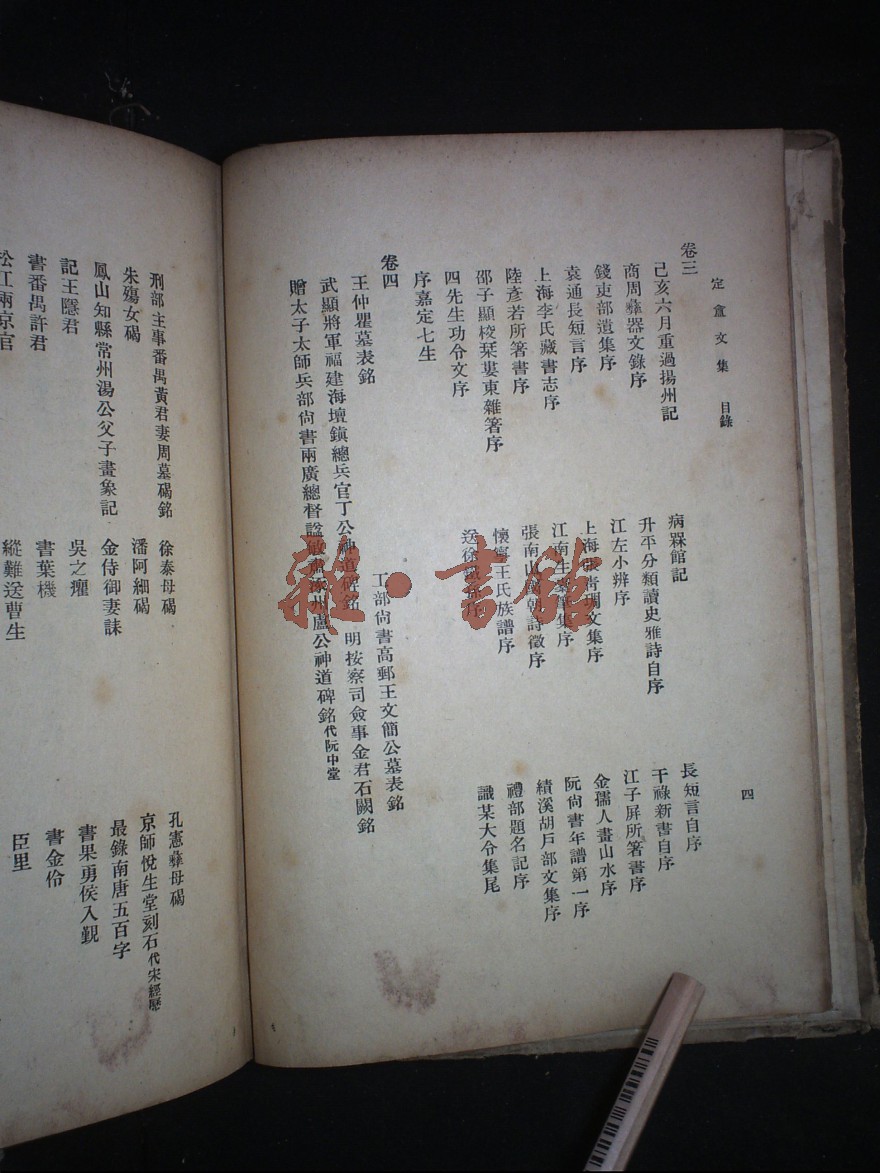 定盦文集 目錄 四
卷三
己亥六月重過揚州記 病槑館記 長短言自序
商周彝器文錄序 升平分類讀史雅詩自序 干祿新書自序
錢吏部遺集序 江左小辨序 江子屏所箸書序
袁通長短言序 上海張靑琱文集序 金孺人畫山水序
上海李氏藏書志序 江南生橐筆集序 阮尙書年譜第一序
陸彥若所箸書序 張南山國朝詩徵序 績溪胡戶部文集序
邵子顯校栞婁東雜箸序 懷寧王氏族譜序 禮部題名記序
四先生功令文序 送徐鐵孫序 識某大令集尾
序嘉定七生
卷四
王仲瞿墓表銘 工部尙書高郵王文簡公墓表銘
武顯將軍福建海壇鎭總兵官丁公神道碑銘 明按察司僉事金君石闕銘
贈太子太師兵部尙書兩廣總督諡敏肅涿州盧公神道碑銘代阮中堂
刑部主事番禺黃君妻周墓碣銘 徐泰母碣 孔憲彝母碣
朱殤女碣 潘阿細碣 京師悅生堂刻石代宋經歷
鳳山知縣常州湯公父子畫象記 金侍御妻誄 最錄南唐五百字
記王隱君 吳之癯 書果勇侯入覲
書番禺許君 書葉機 書金伶
松江兩京官 縱難送曹生 臣里
雜·書館